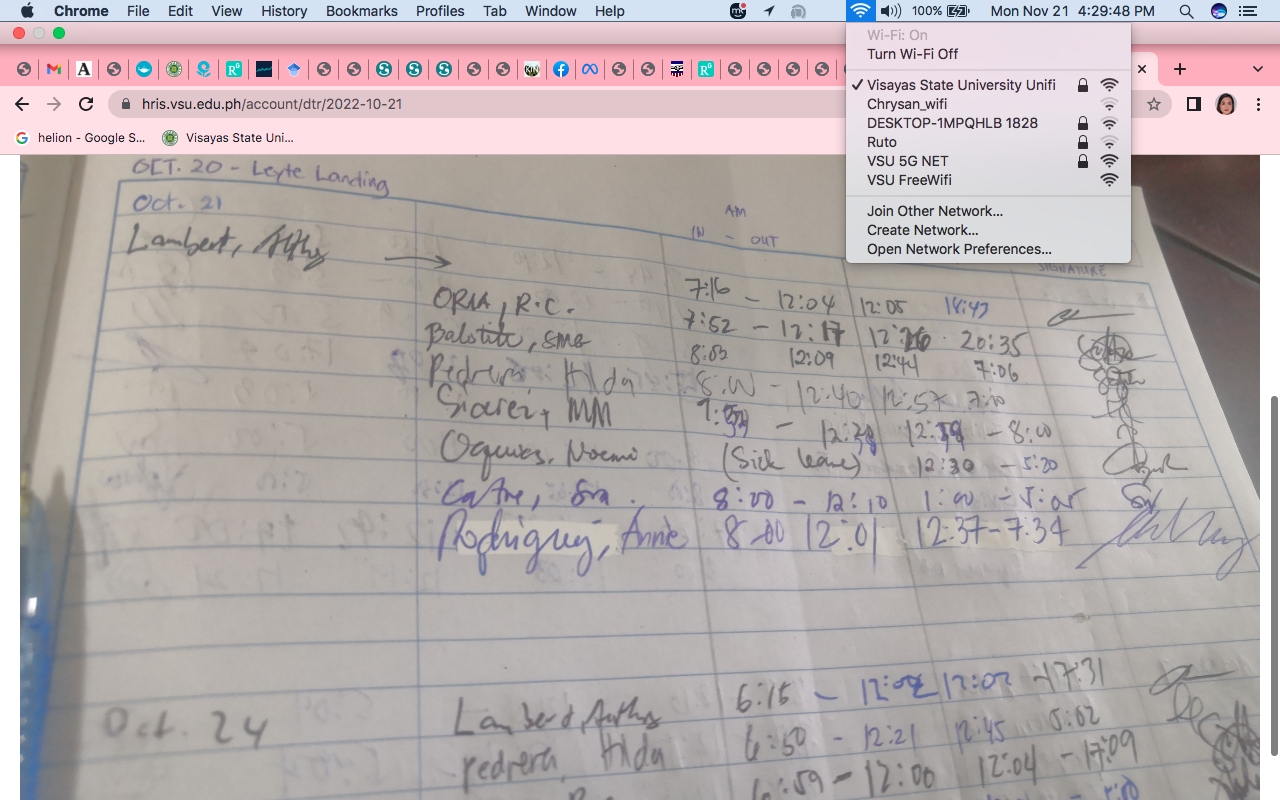 Chrome File Edit View History Bookmarks Profiles Tab Window Help 100% Mon Nov 21 4:29:48 PM
Wi-Fi: On
Turn Wi-Fi Off
Visayas State University Unifi
Chrysan_wifi
DESKTOP-1MPQHLB 1828
Ruto
VSU 5G NET
VSU FreeWifi
Join Other Network...
Create Network...
Open Network Preferences...
hris.vsu.edu.ph/account/dtr/2022-10-21
helion - Google S... Visayas State Uni...
OCT. 20 - Leyte Landing
Oct. 21
AM
IN - OUT
SIGNATURE
Lambert,
ORIA, R.C. 7:16 - 12:04 12:05
7:52 - 12:17 12:26 20:35
Pedrera, Hilda 8:03 12:09 12:41 7:06
8:00 - 12:40 12:57 7:10
MM - 8:00
Noemi (Sick leave) 12:30 - 5:20
8:00 - 12:10 1:00 - 5:05
Rodriguez, Annie 8:00 12:01 12:37-7:34
Oct. 24
Lambert, 6:15 - 12:02 - 17:31
pedrera, Hilda 6:50 - 12:21 12:45 5:02
6:59 - 12:00 12:04 - 17:09